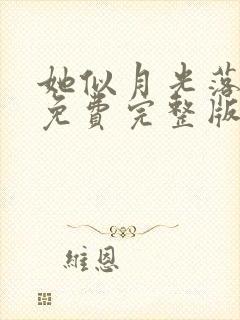 她似月光落
免費完整版
維恩